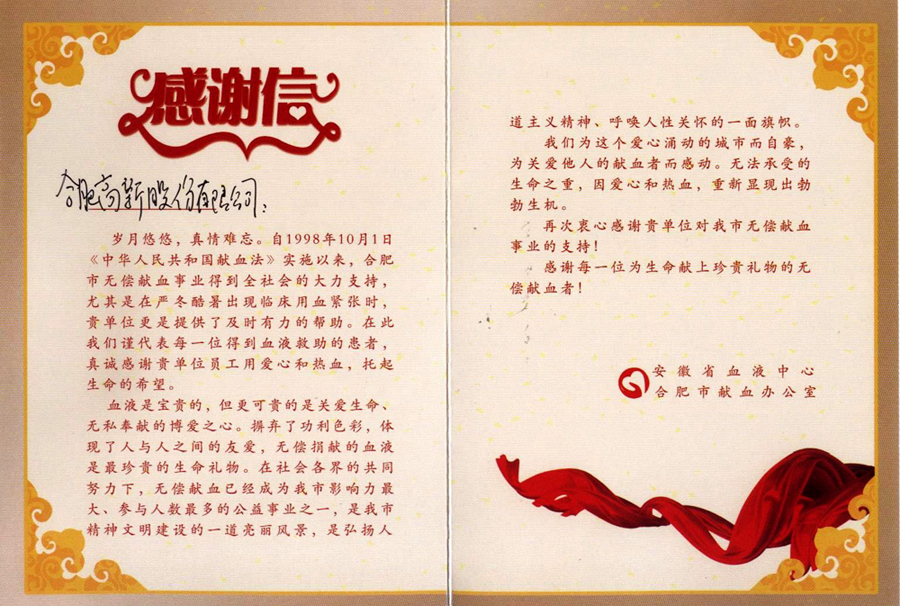 感谢信
合肥高新股份有限公司：
岁月悠悠，真情难忘。自1998年10月1日
《中华人民共和国献血法》实施以来，合肥
市无偿献血事业得到全社会的大力支持，
尤其是在严冬酷暑出现临床用血紧张时，
贵单位更是提供了及时有力的帮助。在此
我们谨代表每一位得到血液救助的患者，
真诚感谢贵单位员工用爱心和热血，托起
生命的希望。
血液是宝贵的，但更可贵的是关爱生命、
无私奉献的博爱之心。摒弃了功利色彩，体
现了人与人之间的友爱，无偿捐献的血液
是最珍贵的生命礼物。在社会各界的共同
努力下，无偿献血已经成为我市影响力最
大、参与人数最多的公益事业之一，是我市
精神文明建设的一道亮丽风景，是弘扬人
道主义精神、呼唤人性关怀的一面旗帜。
我们为这个爱心涌动的城市而自豪，
为关爱他人的献血者而感动。无法承受的
生命之重，因爱心和热血，重新显现出勃
勃生机。
再次衷心感谢贵单位对我市无偿献血
事业的支持！
感谢每一位为生命献上珍贵礼物的无
偿献血者！
安徽省血液中心
合肥市献血办公室